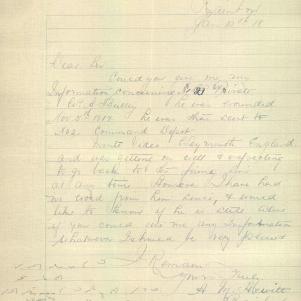 Jan 13th 18
Dear Sir
Could you give me any
Information concerning Private
he was wounded
Nov 5th 1917 he was then sent to
No 2 Command Depot
Monte Video Weymouth England
and was getting on well & expecting
to go back to the firing line
at any time However I have had
no word from him since, & would
like to know if he is still there
if you could give me any Information
whatsoever I should be very pleased
I Remain
Yours Truly
H M Hewitt